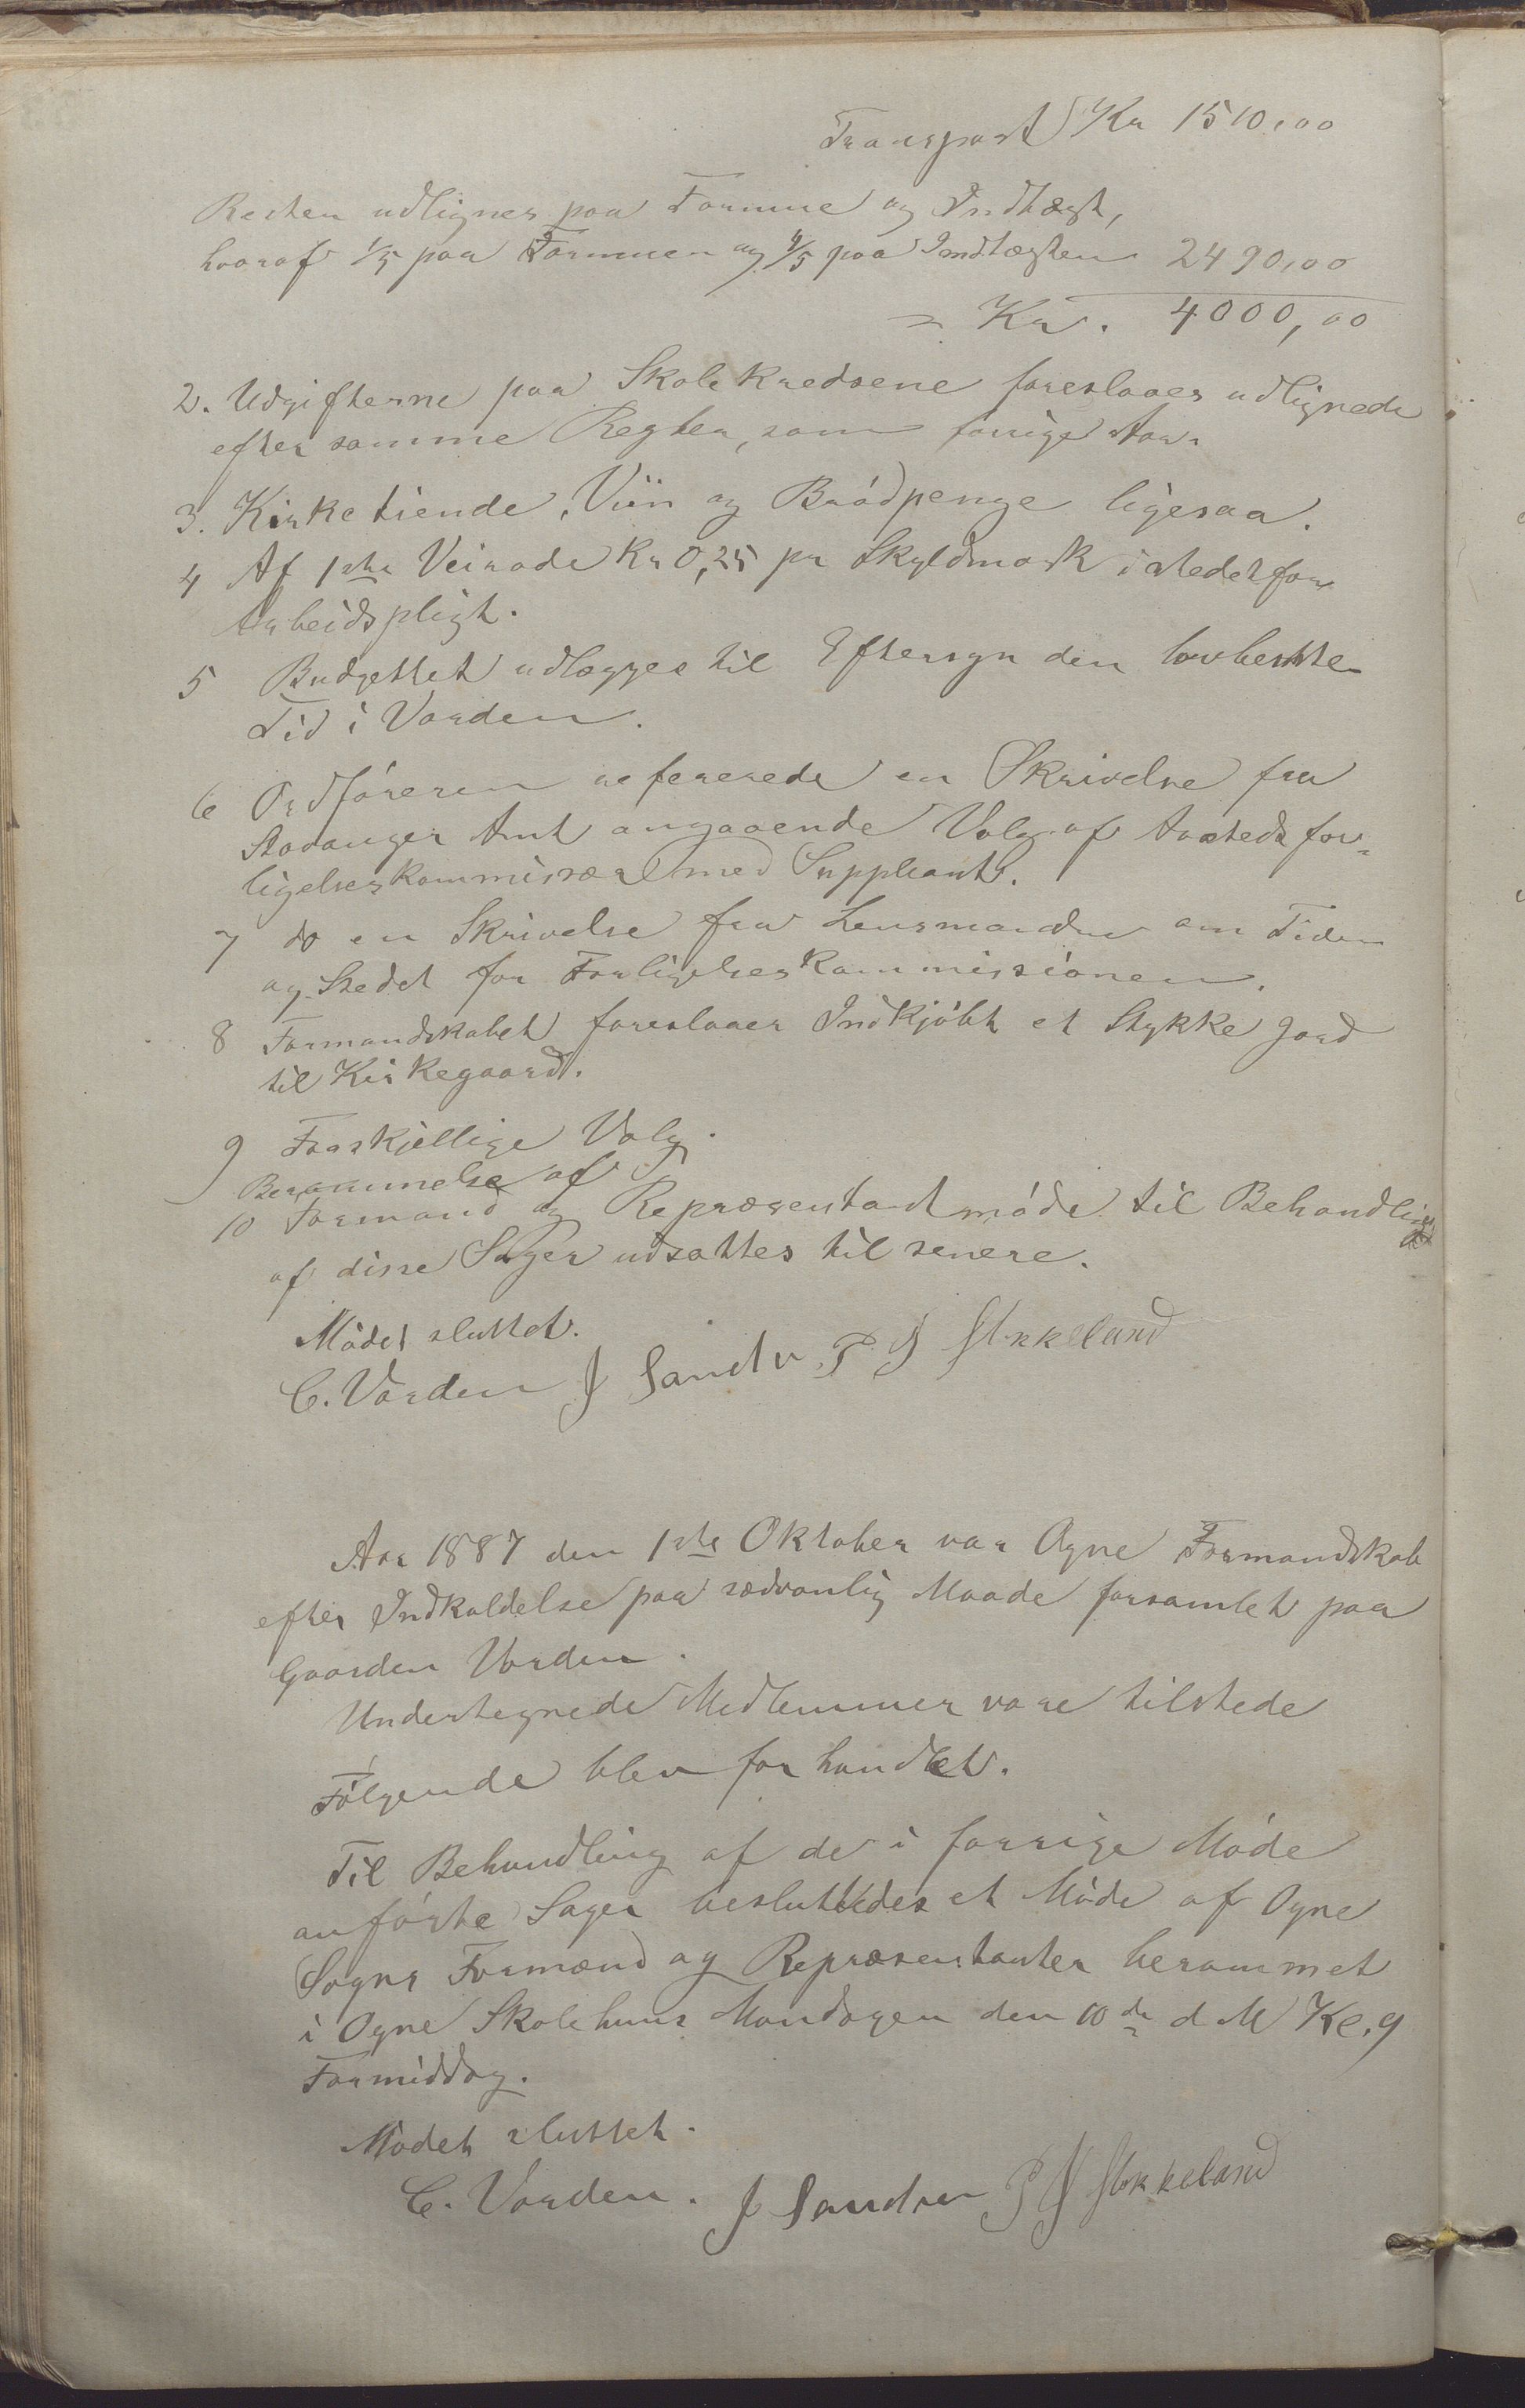 Transport Kr 1510,00
Resten udlignes paa Formue og Indtægt,
hvoraf 1/5 paa Formuen og 4/5 paa Indtægten 2490,00
= Kr. 4000,00
2. Udgifterne paa Skolekredsene foreslaaes udlignede
efter samme Regler, som forrige Aar.
3. Kirketiende, Viin og Brødpenge ligesaa.
4 Af 1ste Veirode Kr 0,25 pr Skyldmark istedetfor
Arbeidspligt.
5 Budgettet udlægges til Eftersyn den lovbestte
Tid i Varden.
6 Ordføreren refererede en Skrivelse fra
Stavanger Amt angaaende Valg af Aastedsfor-
ligelseskommissær med Suppleant.
7 do en Skrivelse fra Lensmanden om Tiden
og Stedet for Forligelseskommissionen.
8 Formandskabet foreslaaer Indkjøbt et Stykke Jord
til Kirkegaard.
9 Forskjellige Valg.
Berammelse af
10 Formand og Repræsentantmøde til Behandling
af disse Sager udsattes til senere.
Mødet sluttet.
C. Varden J Sandve P J Stokkeland
Aar 1887 den 1ste Oktober var Ogne Formandskab
efter Indkaldelse paa sædvanlig Maade forsamlet paa
Gaarden Varden.
Undertegnede Medlemmer vare tilstede
Følgende blev forhandlet.
Til Behandling af de i forrige Møde
anførte Sager besluttedes et Møde af Ogne
Sogns Formænd og Repræsentanter berammet
i Ogne Skolehuus Mandagen den 10de d M Kl. 9
Formiddag.
Mødet sluttet.
C. Varden. J Sandve P J Stokkeland